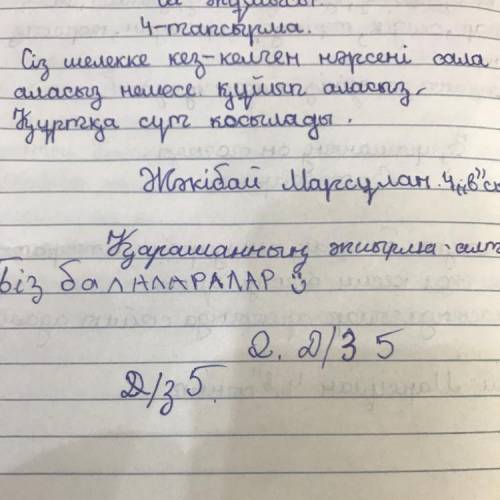 жұмысы.
4-тапсырма.
Сіз шелекке кез-келген нәрсені сала
аласыз немесе құйып аласыз.
Құртқа сүт қосылады.
Жәкібай Марсұлан. 4 „в" сы
Қарашаның жиырма алт
Біз балалАРАЛАР
2. Д/З 5
Д/з 5.